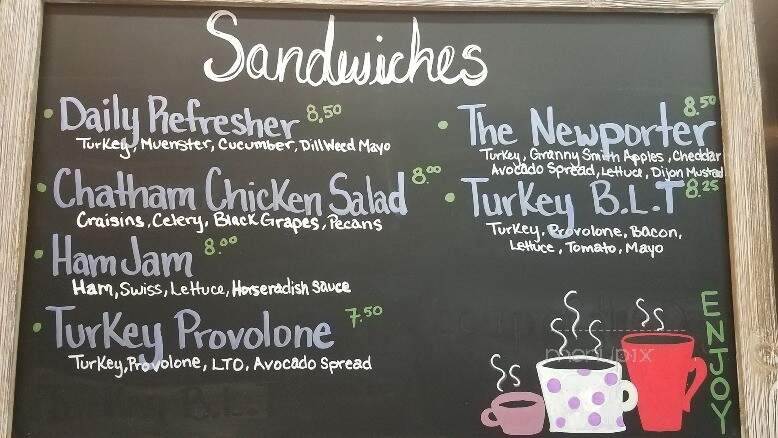 Sandwiches
Daily Refresher 8.50
Turkey, Muenster, Cucumber, Dill Weed Mayo
Chatham Chicken Salad 8.00
Craisins, Celery, Black Grapes, Pecans
Ham Jam 8.00
Ham, Swiss, Lettuce, Horseradish Sauce
Turkey Provolone 7.50
Turkey, Provolone, LTO, Avocado Spread
The Newporter 8.50
Turkey, Granny Smith Apples, Cheddar
Avocado Spread, Lettuce, Dijon Mustard
Turkey B.L.T 8.25
Turkey, Provolone, Bacon,
Lettuce, Tomato, Mayo
ENJOY
menupix